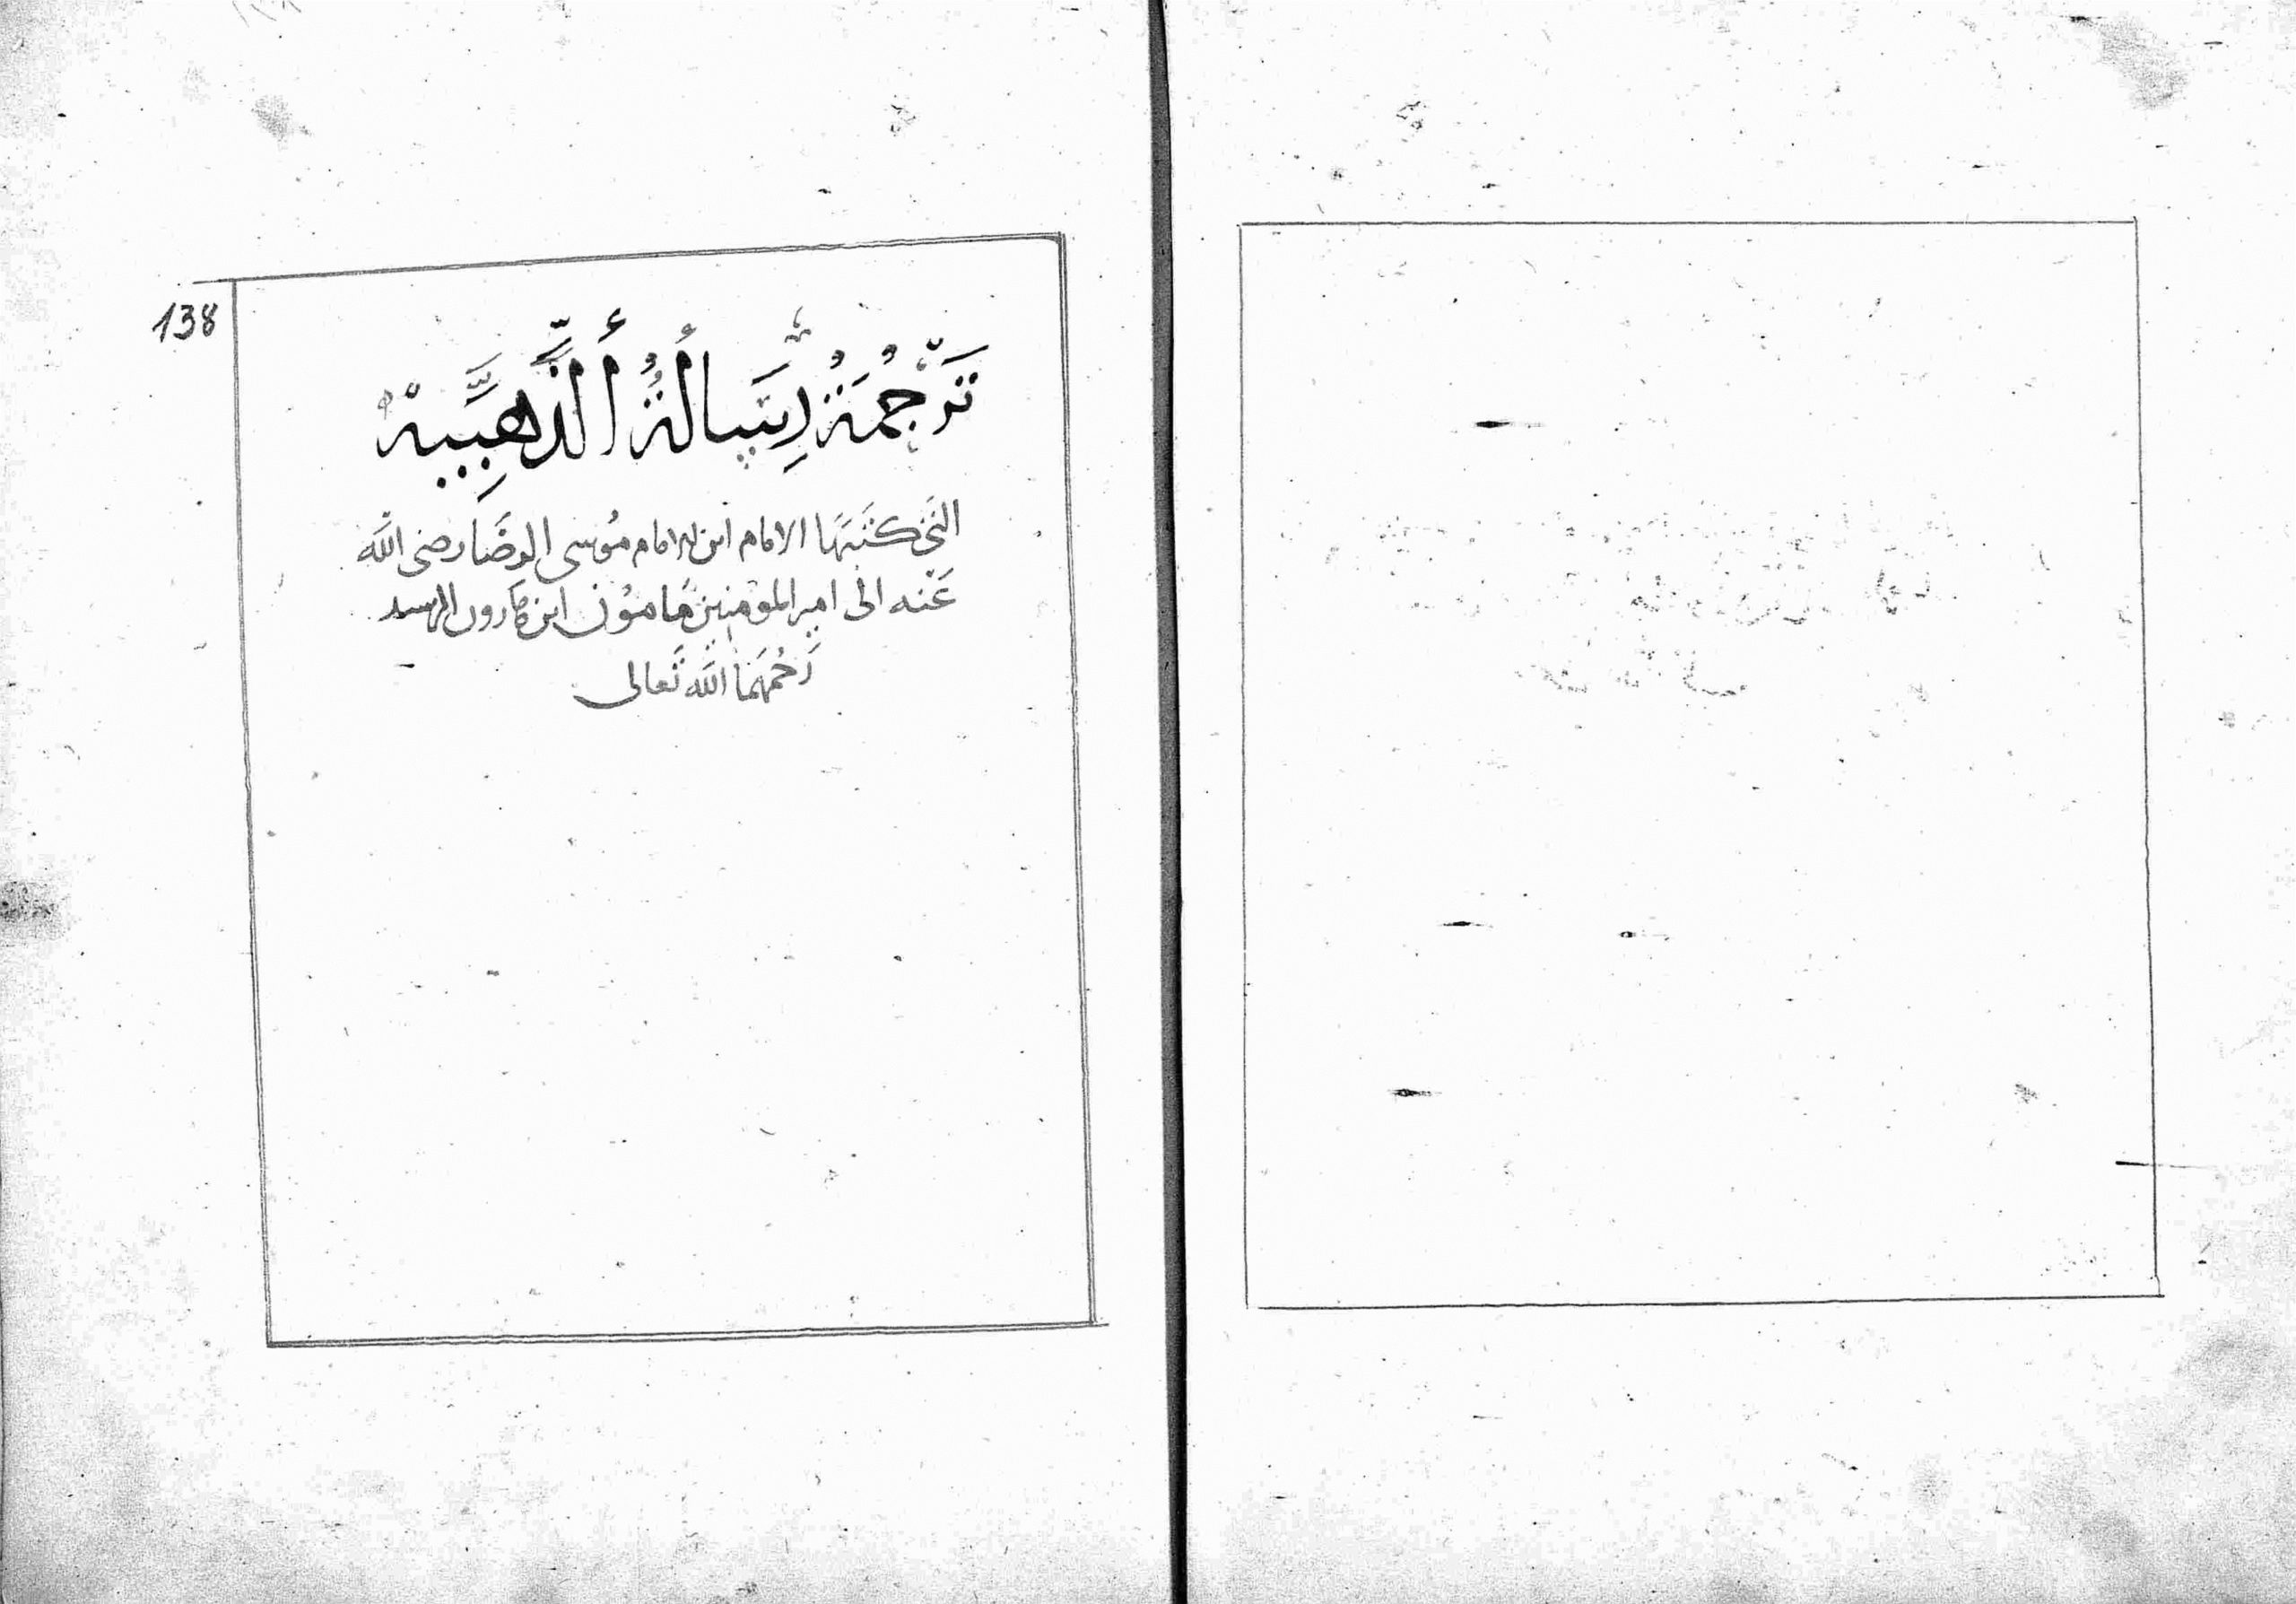 138
تَرْجُمَةُ رِسَالَةُ أَلذَّهَبِيَّه
التي كَتَبَهَا الامام ابن الامام مُوسى الرضَا رضى اللّٰه
عَنْه الى امير المومنين مَامُوْن ابن هَارون الرسىد
رَحْمَهمَا اللّٰه تَعالى